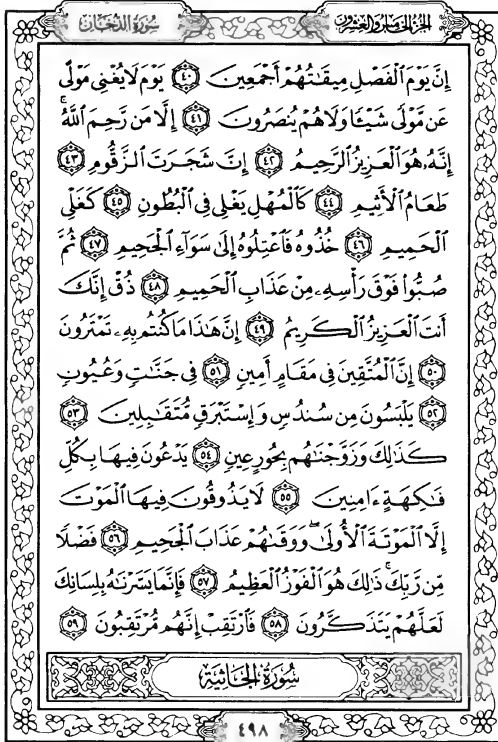 سُورَةُ الدُّخَانِ
الجُزءُ الخَامِسُ وَالعِشرُونَ
إِنَّ يَوْمَ ٱلْفَصْلِ مِيقَٰتُهُمْ أَجْمَعِينَ ٤٠ يَوْمَ لَا يُغْنِى مَوْلًى
عَن مَّوْلًى شَيْـًٔا وَلَا هُمْ يُنصَرُونَ ٤١ إِلَّا مَن رَّحِمَ ٱللَّهُۚ
إِنَّهُۥ هُوَ ٱلْعَزِيزُ ٱلرَّحِيمُ ٤٢ إِنَّ شَجَرَتَ ٱلزَّقُّومِ ٤٣
طَعَامُ ٱلْأَثِيمِ ٤٤ كَٱلْمُهْلِ يَغْلِى فِى ٱلْبُطُونِ ٤٥ كَغَلْىِ
ٱلْحَمِيمِ ٤٦ خُذُوهُ فَٱعْتِلُوهُ إِلَىٰ سَوَآءِ ٱلْجَحِيمِ ٤٧ ثُمَّ
صُبُّوا۟ فَوْقَ رَأْسِهِۦ مِنْ عَذَابِ ٱلْحَمِيمِ ٤٨ ذُقْ إِنَّكَ
أَنتَ ٱلْعَزِيزُ ٱلْكَرِيمُ ٤٩ إِنَّ هَٰذَا مَا كُنتُم بِهِۦ تَمْتَرُونَ
٥٠ إِنَّ ٱلْمُتَّقِينَ فِى مَقَامٍ أَمِينٍ ٥١ فِى جَنَّٰتٍ وَعُيُونٍ
٥٢ يَلْبَسُونَ مِن سُندُسٍ وَإِسْتَبْرَقٍ مُّتَقَٰبِلِينَ ٥٣
كَذَٰلِكَ وَزَوَّجْنَٰهُم بِحُورٍ عِينٍ ٥٤ يَدْعُونَ فِيهَا بِكُلِّ
فَٰكِهَةٍ ءَامِنِينَ ٥٥ لَا يَذُوقُونَ فِيهَا ٱلْمَوْتَ
إِلَّا ٱلْمَوْتَةَ ٱلْأُولَىٰۖ وَوَقَىٰهُمْ عَذَابَ ٱلْجَحِيمِ ٥٦ فَضْلًا
مِّن رَّبِّكَۚ ذَٰلِكَ هُوَ ٱلْفَوْزُ ٱلْعَظِيمُ ٥٧ فَإِنَّمَا يَسَّرْنَٰهُ بِلِسَانِكَ
لَعَلَّهُمْ يَتَذَكَّرُونَ ٥٨ فَٱرْتَقِبْ إِنَّهُم مُّرْتَقِبُونَ ٥٩
سُورَةُ الجَاثِيَةِ
٤٩٨